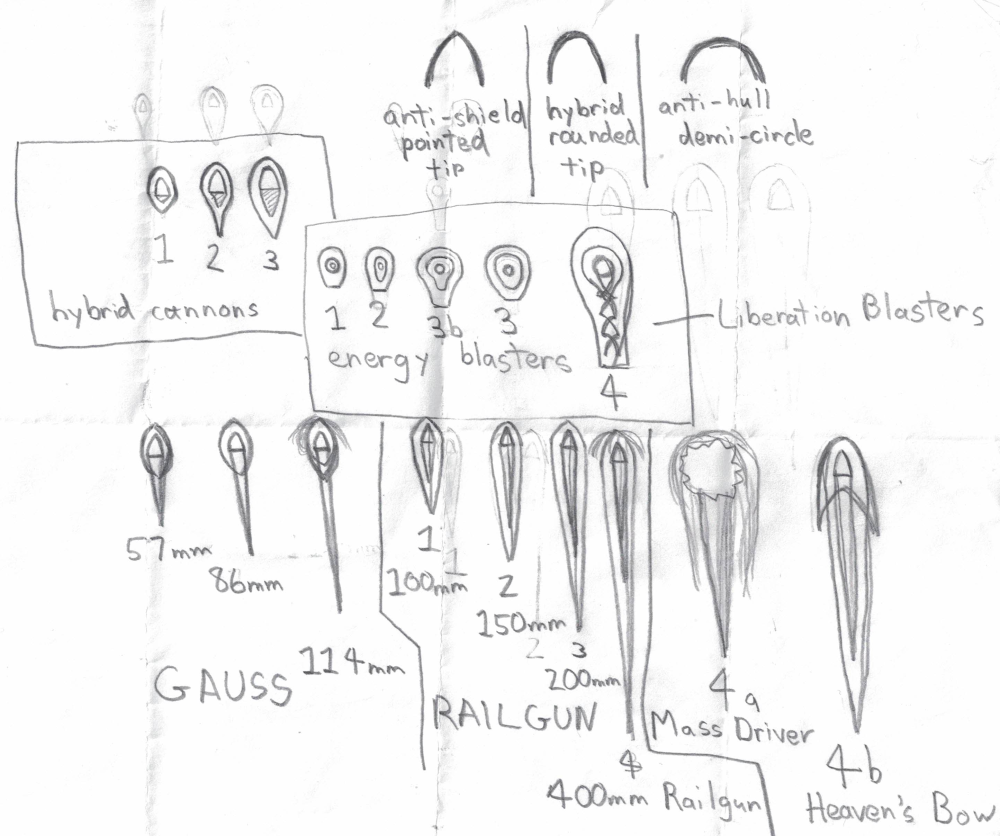 anti-shield
pointed
tip
hybrid
rounded
tip
anti-hull
demi-circle
1
2
3
hybrid cannons
1
2
3b
3
4
energy blasters
Liberation Blasters
57mm
86mm
114mm
GAUSS
1
100mm
1
2
150mm
2
3
200mm
RAILGUN
4
400mm Railgun
4a
Mass Driver
4b
Heaven's Bow